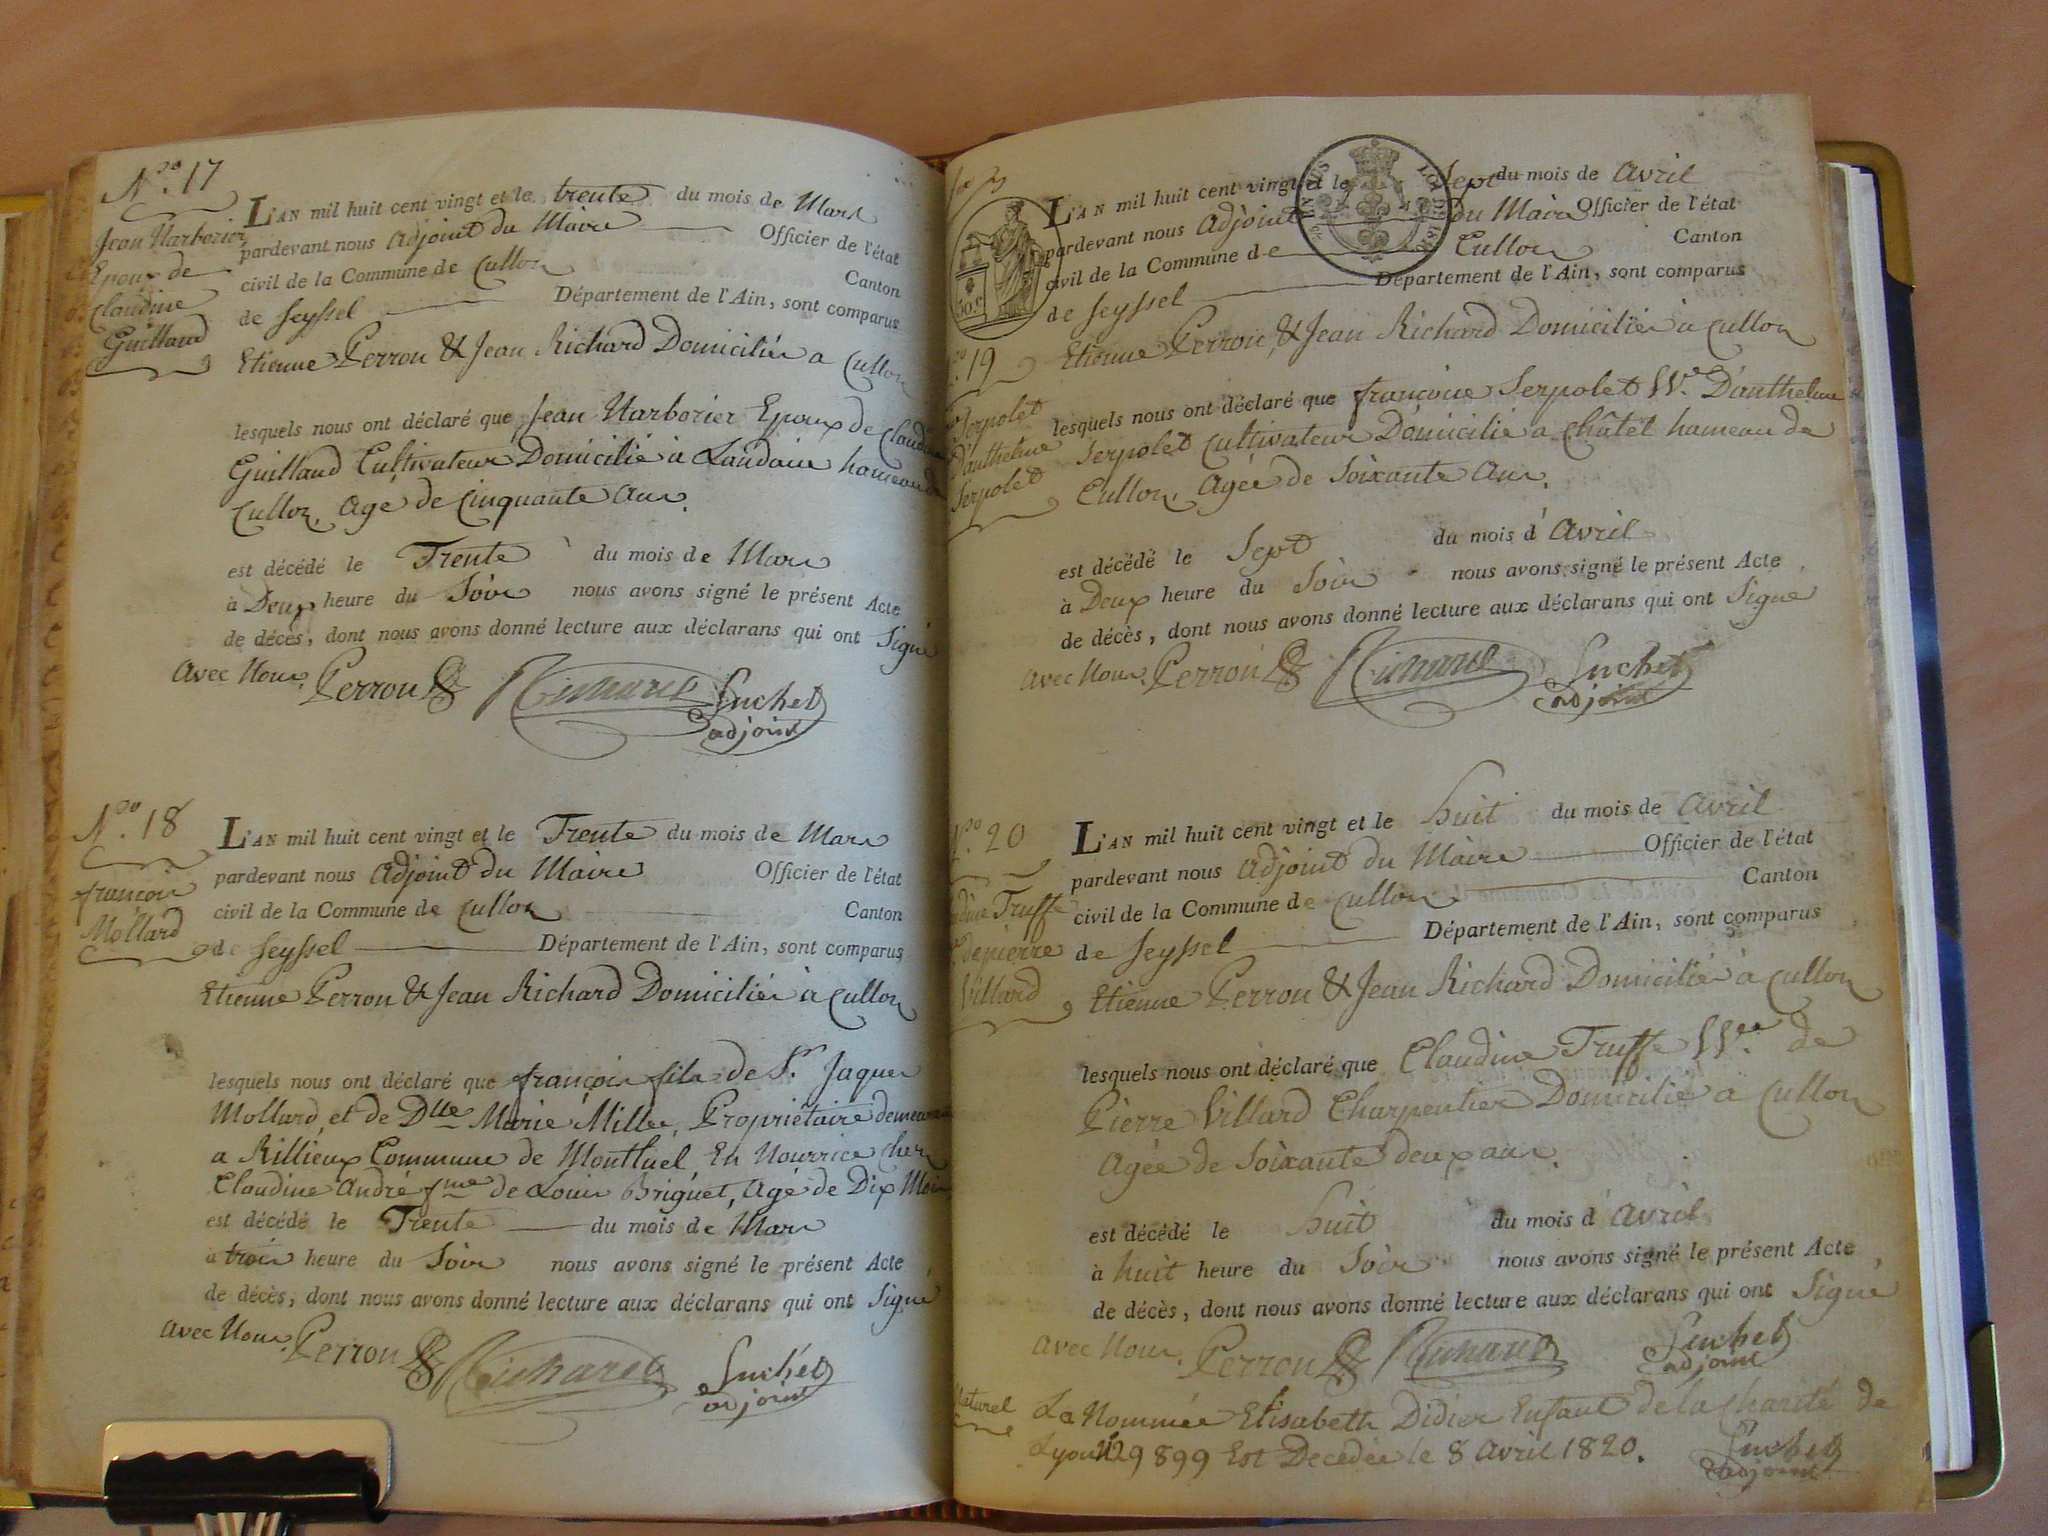 N.ro 17
Jean Narborier
Epoux de
Claudine
Guilland
L'AN mil huit cent vingt et le trente du mois de Mars
pardevant nous Adjoint du Maire Officier de l'état
civil de la Commune de Culloz Canton
de Seyssel Département de l'Ain, sont comparus
Etienne Perron & Jean Richard Domiciliés a Culloz
lesquels nous ont déclaré que Jean Narborier Epoux de Claudine
Guilland Cultivateur Domicilié à Landaise hameau de
Culloz, Agé de Cinquante Ans.
est décédé le Trente du mois de Mars
à Deux heure du Soir nous avons signé le présent Acte
de décès, dont nous avons donné lecture aux déclarans qui ont Signé
Avec Nous. Perron Richard Suchet
adjoint
N.ro 18
françois
Mollard
L'AN mil huit cent vingt et le Trente du mois de Mars
pardevant nous Adjoint du Maire Officier de l'état
civil de la Commune de Culloz Canton
de Seyssel Département de l'Ain, sont comparus
Etienne Perron & Jean Richard Domiciliés à Culloz
lesquels nous ont déclaré que françois fils de S.r Jaques
Mollard, et de Dlle Marie Millee, Propriétaire
a Rillieux Commune de Montluel, En Nourrice chez
Claudine André fme de Louis Briguet, Agé de Dix Mois
est décédé le Trente du mois de Mars
à trois heure du Soir nous avons signé le présent Acte
de décès, dont nous avons donné lecture aux déclarans qui ont Signé
Avec Nous. Perron Richard Suchet
adjoint
50 c
LOI DE 1816
19
Serpolet
D'anthelme
Serpolet
L'AN mil huit cent vingt et le Sept du mois de Avril
pardevant nous Adjoint du Maire Officier de l'état
civil de la Commune de Culloz Canton
de Seyssel Département de l'Ain, sont comparus
Etienne Perron, & Jean Richard Domiciliés à Culloz
lesquels nous ont déclaré que françoise Serpolet Vve D'anthelme
Serpolet Cultivateur Domicilié a Châtel hameau de
Culloz, Agée de Soixante Ans.
est décédé le Sept du mois d'Avril
à Deux heure du Soir nous avons signé le présent Acte
de décès, dont nous avons donné lecture aux déclarans qui ont Signé
Avec Nous. Perron Richard Suchet
adjoint
20
Truffe
de pierre
Villard
L'AN mil huit cent vingt et le huit du mois de Avril
pardevant nous Adjoint du Maire Officier de l'état
civil de la Commune de Culloz Canton
de Seyssel Département de l'Ain, sont comparus
Etienne Perron & Jean Richard Domiciliés à Culloz
lesquels nous ont déclaré que Claudine Truffe Vve de
Pierre Villard Charpentier Domicilié a Culloz
Agée de Soixante deux ans.
est décédé le huit du mois d'Avril
à huit heure du Soir nous avons signé le présent Acte
de décès, dont nous avons donné lecture aux déclarans qui ont Signé
Avec Nous. Perron Richard Suchet
adjoint
Naturel
La Nommée Elisabeth Didier Enfant de la Charité de
Lyon 9899 Est Decedée le 8 Avril 1820. Suchet
adjoint